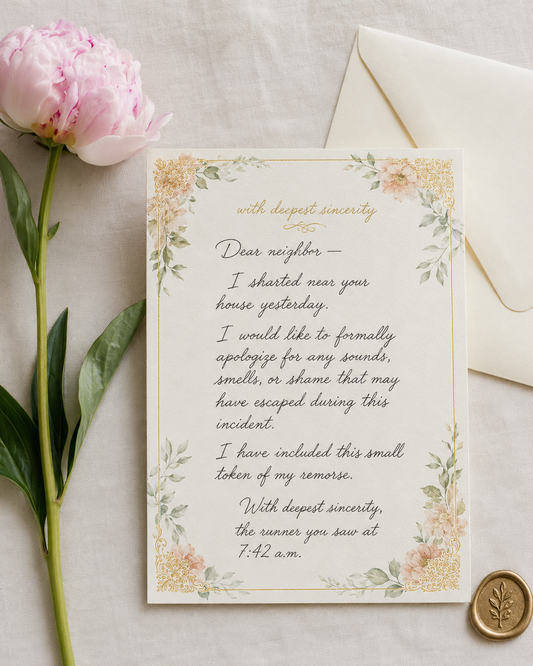 with deepest sincerity
Dear neighbor —
I sharted near your
house yesterday.
I would like to formally
apologize for any sounds,
smells, or shame that may
have escaped during this
incident.
I have included this small
token of my remorse.
With deepest sincerity,
the runner you saw at
7:42 a.m.